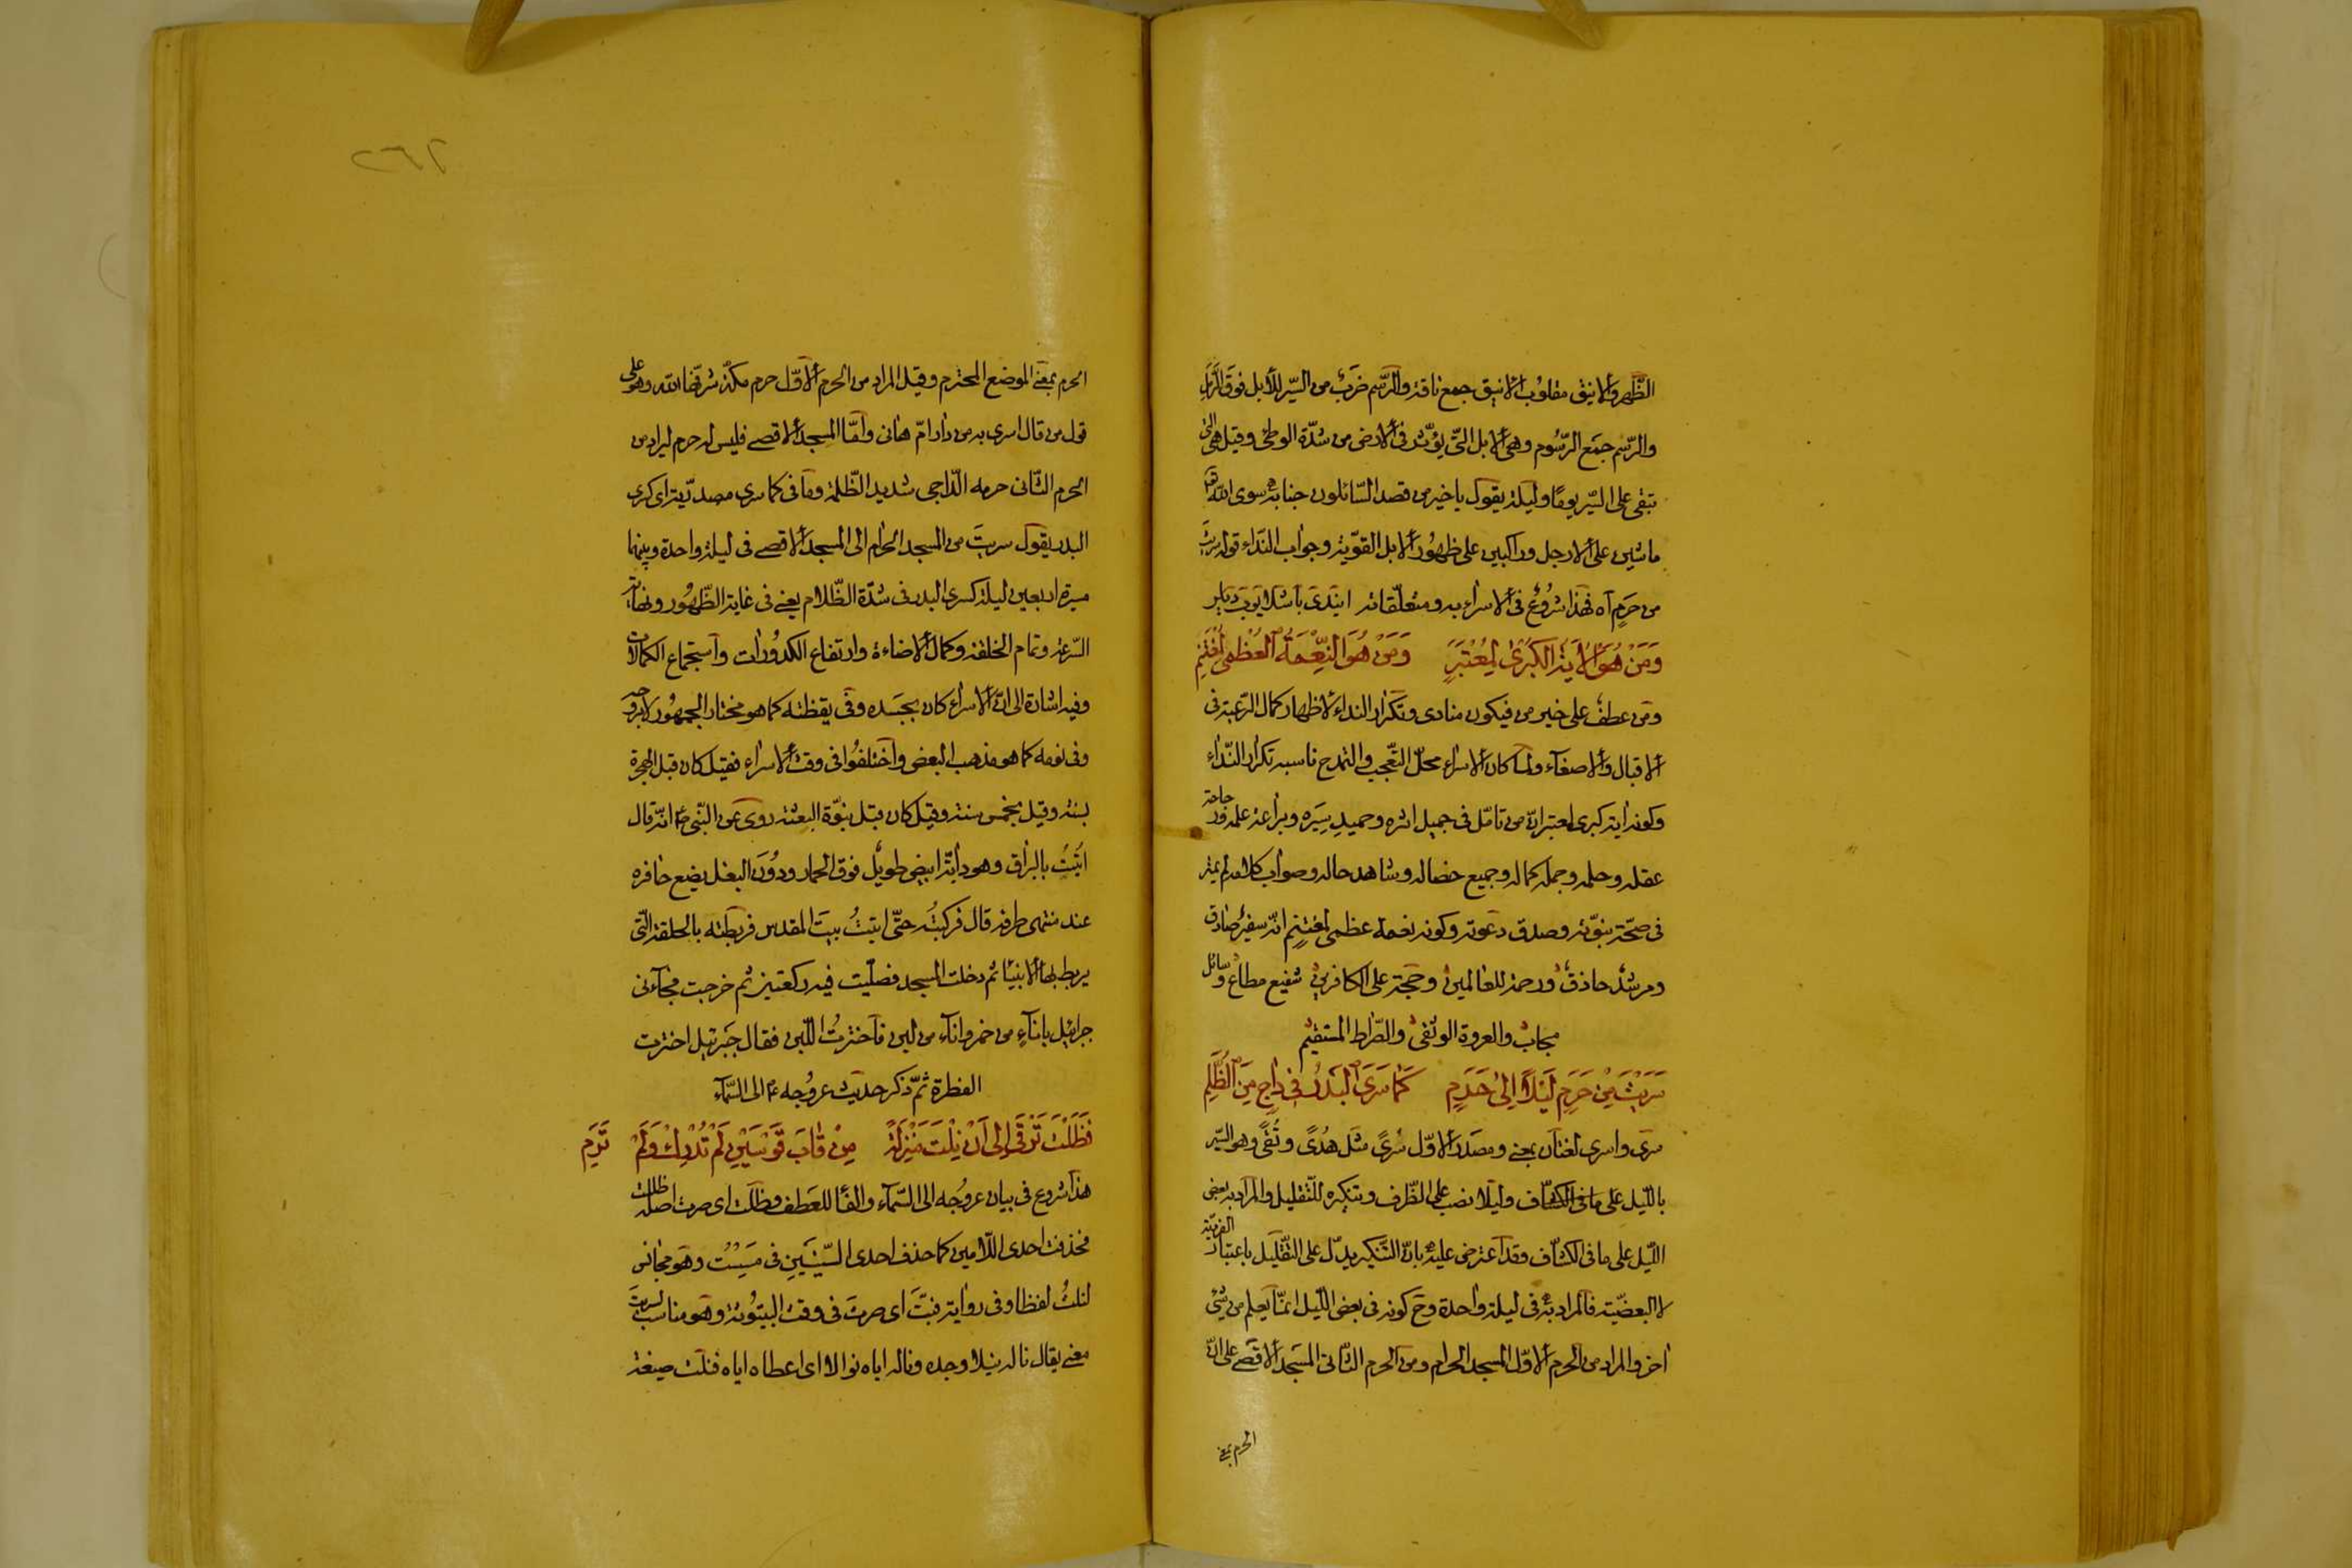 الظهر والاينق مقلوب الانيق جمع ناقة والرسم ضرب من السير للابل فوق الزمل
والرسم جمع الرسوم وهي الابل التي يؤثر في الارض من شدة الوطئ وقيل هي التي
تبقى على السير يوما وليلة يقول يا خير من قصد السائلون جنابه سوى الله تعا
ماشين على الارجل وراكبين على ظهور الابل القوية وجواب النداء قوله سريت
من حرم آه فهذا شروع في الاسراء به ومتعلقاته
وَمَنْ هُوَ الْاٰيَةُ الْكُبْرٰى لِمُعْتَبِرٍ وَمَنْ هُوَ النِّعْمَةُ الْعُظْمٰى لِمُغْتَنِمِ
ومن عطف على خير من فيكون منادى وتكرار النداء لاظهار كمال الرغبة في
الاقبال والاصغآء ولما كان الاسراء محل التعجب والتمدح ناسبه تكرار النداء
وكونه اية كبرى لمعتبر انه من تامل في جميل اثره وحميد سيره وبراعة علمه ورجاحة
عقله وحلمه وجملة كماله وجميع خصاله وشاهد حاله وصواب كلامه لم يمتر
في صحة نبوته وصدق دعوته وكونه نعمة عظمى لمغتنم انه سفير صادق
ومرشد حاذق ورحمة للعالمين وحجة على الكافرين شفيع مطاع وسائل
مجاب والعروة الوثقى والصراط المستقيم
سَرَيْتَ مِنْ حَرَمٍ لَيْلاً اِلٰى حَرَمٍ كَمَا سَرَى الْبَدْرُ فِى دَاجٍ مِنَ الظُّلَمِ
سرى واسرى لغتان بمعنى ومصدر الاول سُرىً مثل هُدىً وتُقىً وهو السير
بالليل على ما في الكشاف وليلا نصب على الظرف وتنكيره للتقليل والمراد به بعض
الليل على ما في الكشاف وقد اعترض عليه بان التنكير يدل على التقليل باعتبار الفردية
لا البعضية فالمراد به في ليلة واحدة وح كونه في بعض الليل انما يعلم من شئ
اخر والمراد من الحرم الاول المسجد الحرام ومن الحرم الثاني المسجد الاقصى على ان
الحرم بمعنى
٢٦٢
الحرم بمعنى الموضع المحترم وقيل المراد من الحرم الاول حرم مكة شرفها الله وهو على
قول من قال اسرى به من دار ام هانى واما المسجد الاقصى فليس له حرم ليراد من
الحرم الثاني حرمه الداجي شديد الظلمة وما في كما سرى مصدرية اي كسرى
البدر يقول سريت من المسجد الحرام الى المسجد الاقصى في ليلة واحدة وبينهما
مسيرة اربعين ليلة كسرى البدر في شدة الظلام يعني في غاية الظهور ونهاية
السرعة وتمام الخلقة وكمال الاضاءة وارتفاع الكدورات واستجماع الكمالات
وفيه اشارة الى ان الاسراء كان بجسده وفي يقظته كما هو مختار الجمهور لا بروحه
وفي نومه كما هو مذهب البعض واختلفوا في وقت الاسراء فقيل كان قبل الهجرة
بسنة وقيل بخمس سنة وقيل كان قبل نبوة البعثة روى عن النبي ءم انه قال
اُتيتُ بالبراق وهو دابة ابيض طويل فوق الحمار ودون البغل يضع حافره
عند منتهى طرفه قال فركبته حتى اتيتُ بيت المقدس فربطته بالحلقة التي
يربط بها الانبياء ثم دخلت المسجد فصليت فيه ركعتين ثم خرجت فجآءنى
جبرائيل باناءٍ من خمر واناء من لبن فاخترتُ اللبن فقال جبرئيل اخترت
الفطرة ثم ذكر حديث عروجه ءم الى السمآء
فَظَلْتَ تَرْقٰى اِلٰى اَنْ نِلْتَ مَنْزِلَةً مِنْ قَابَ قَوْسَيْنِ لَمْ تُدْرَكْ وَلَمْ تُرَمِ
هذا شروع في بيان عروجه الى السمآء والفا للعطف وظلت اى صرت اصله ظللت
فحذفت احدى اللامين كما حذف احدى السينين في مسيست وهو مجانس
لنلت لفظا وفي رواية فبتَّ اى صرت في وقت البيتوتة وهو مناسب لسريت
معنى يقال ناله نيلا وجده وناله اياه نوالا اى اعطاه اياه فنلت صيغة